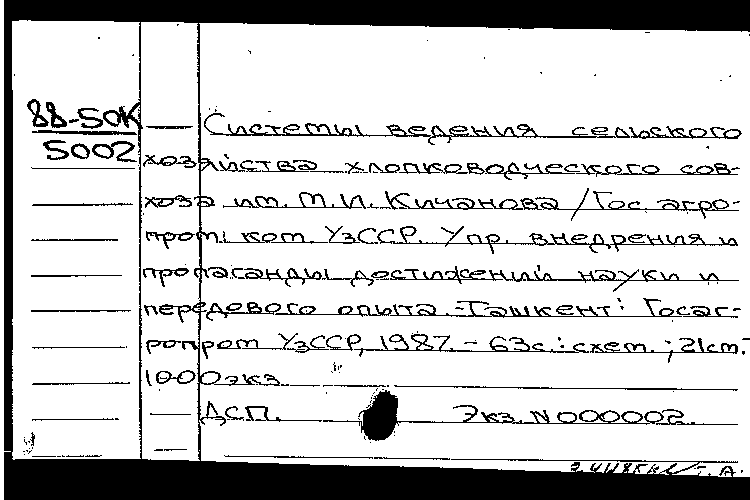 88-50К
5002
Системы ведения сельского
хозяйства хлопководческого сов-
хоза им. М.И. Кичанова / Гос. агро-
пром. ком. УзССР. Упр. внедрения и
пропаганды достижений науки и
передового опыта.-Ташкент: Госаг-
ропром УзССР, 1987. - 63с.: схем.; 21см.-
1000экз.
ДСП. Экз. N000002.